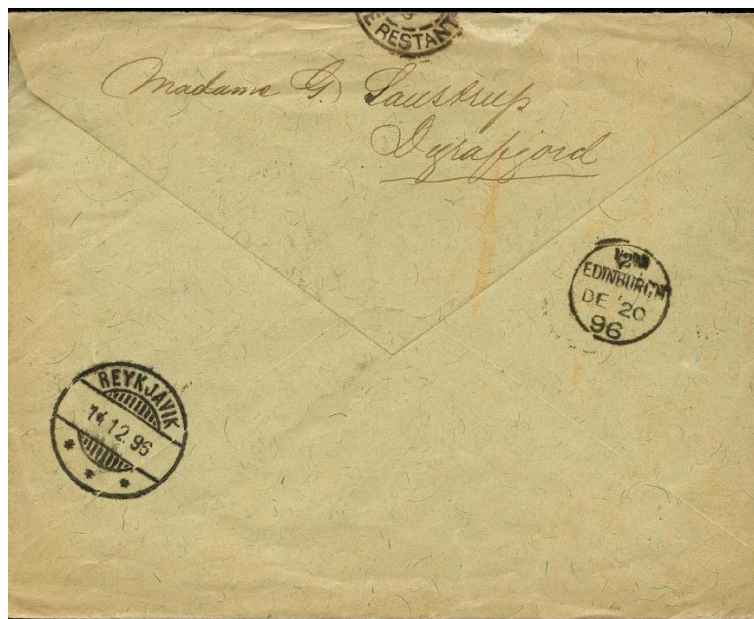 E RESTANT
Madame G. Laustrup
Dyrafjord
EDINBURGH
DE 20
96
REYKJAVIK
14.12.96